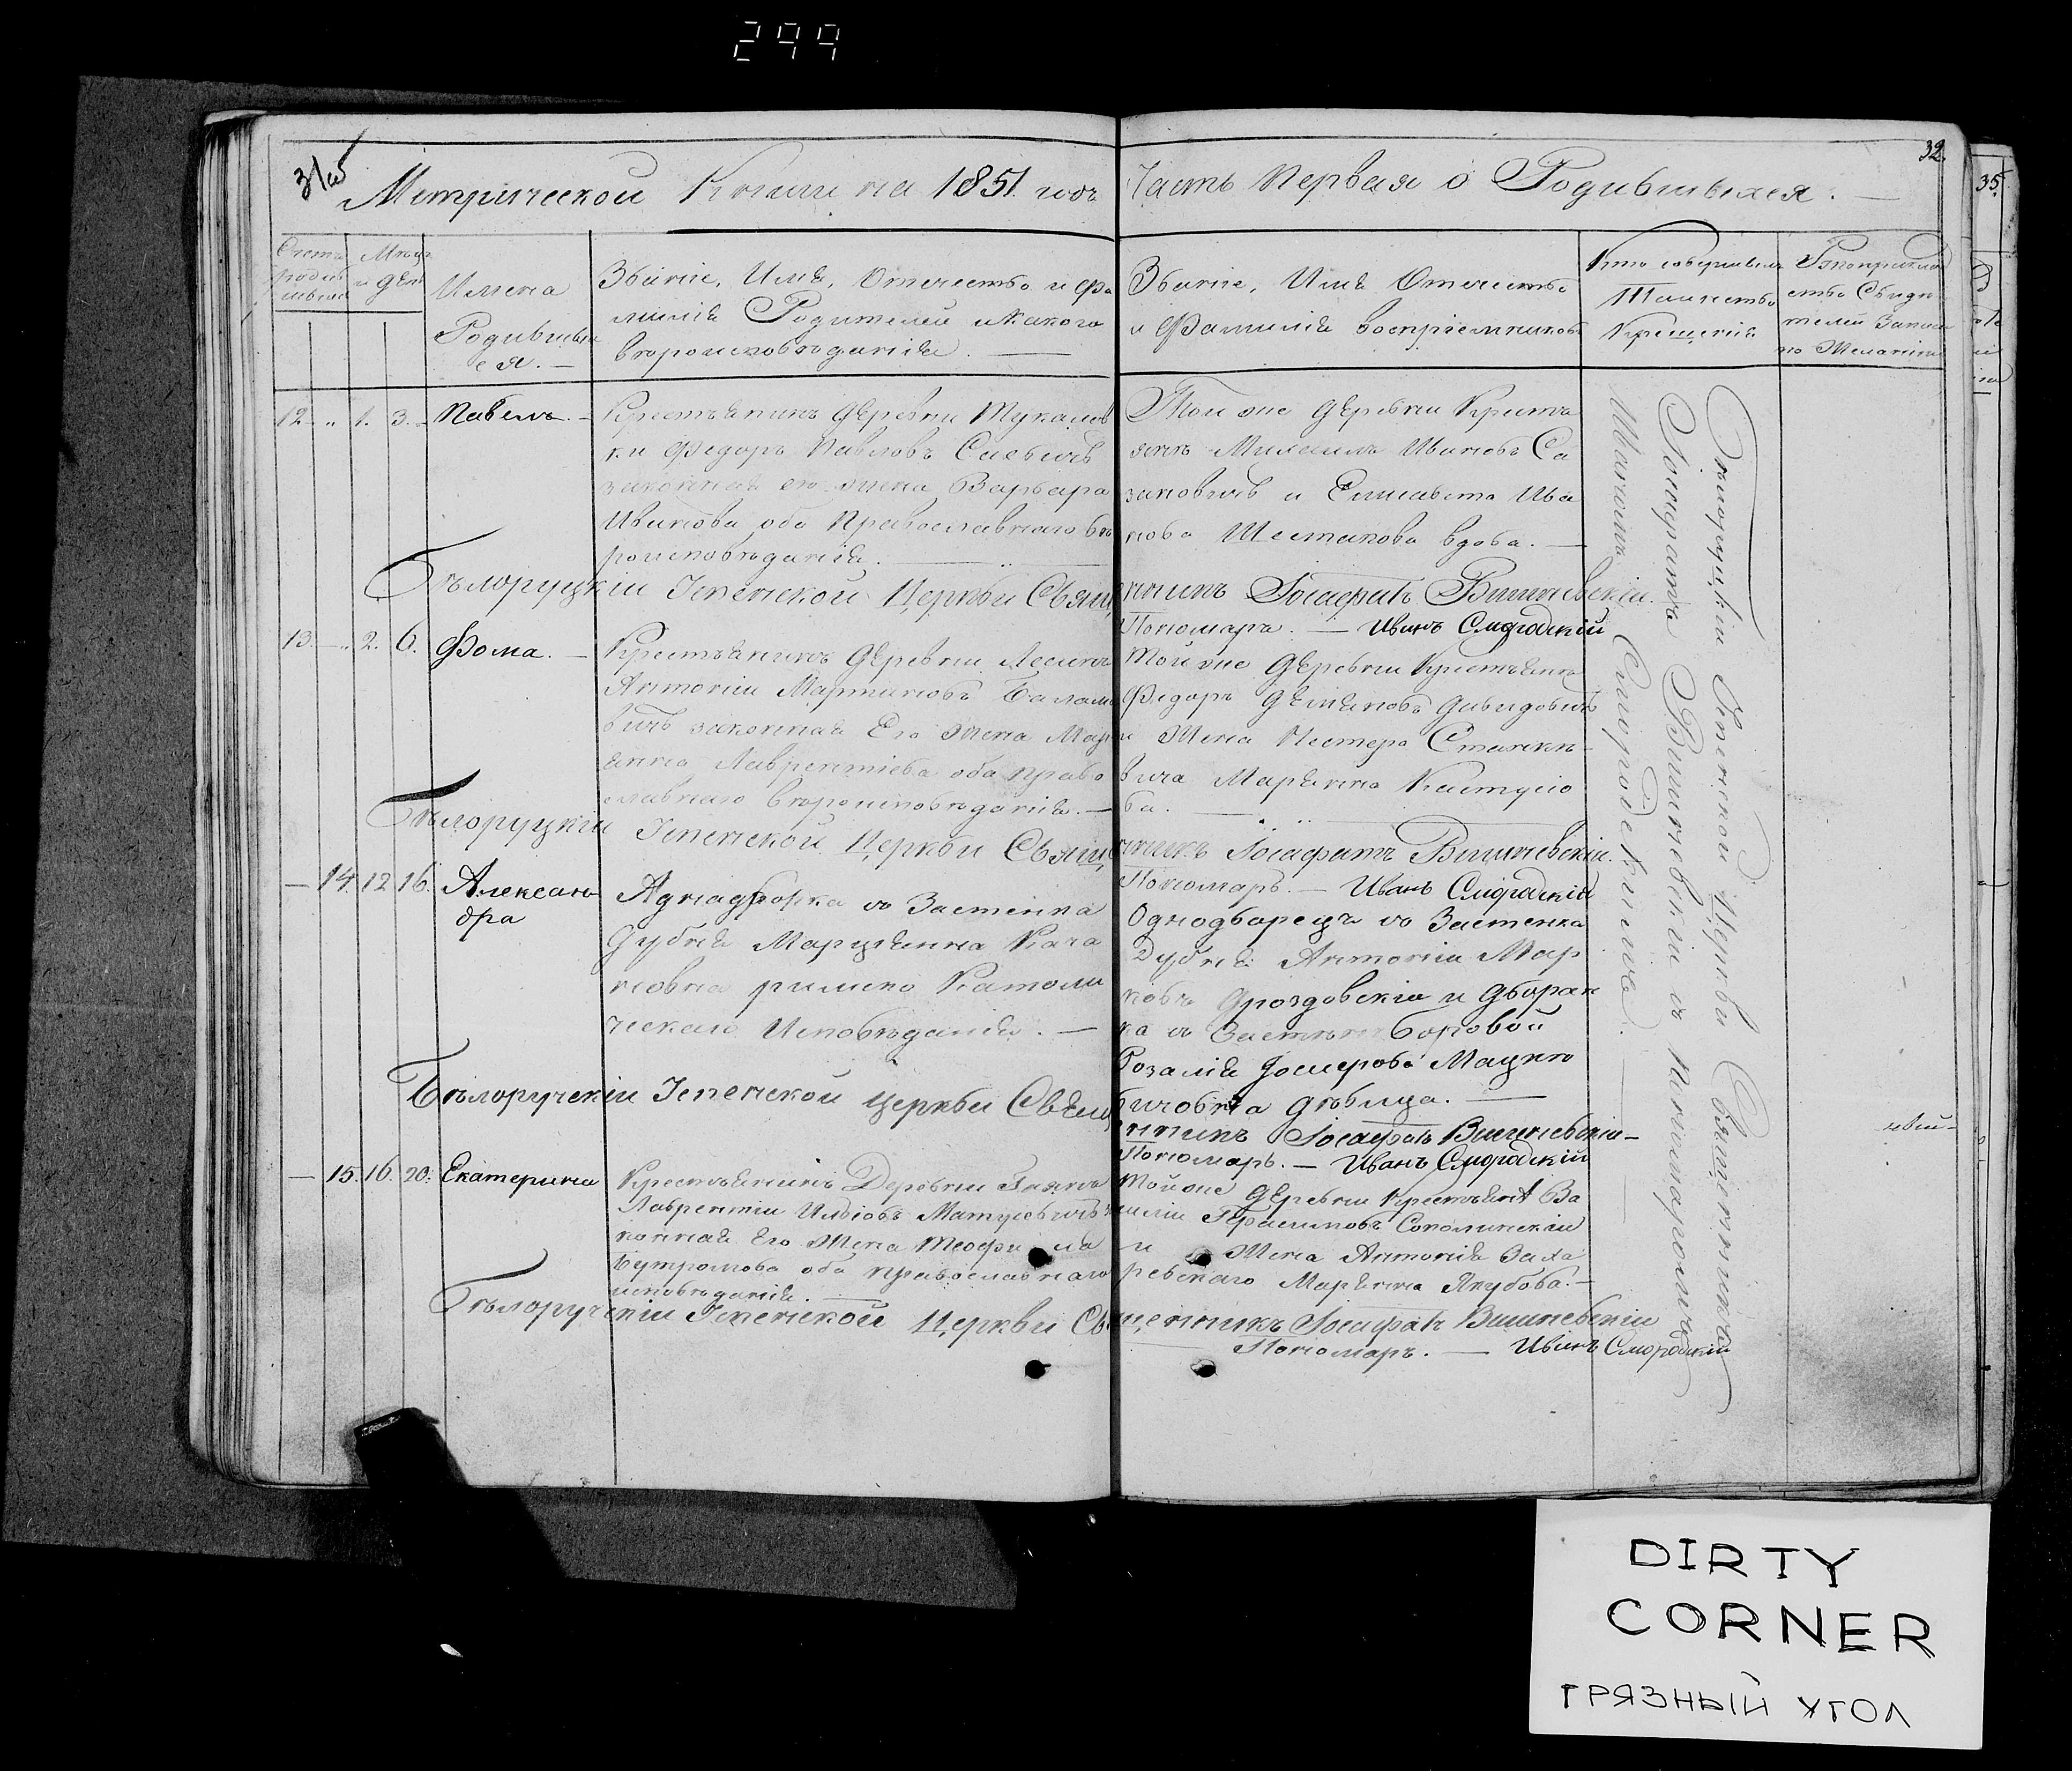 299
31 об
32.
35.
Метрической Книги на 1851 годъ Часть Первая о Родившихся.
Счетъ родившихся
Мѣсяцъ и День
Имена
Родившых
ся.
Званіе, Имя, Отечество и фа
милія Родителей и какого
вѣроисповѣданія.
Званіе, Имя Отечество
и Фамилія воспріемниковъ
Кто совершилъ
Таинство
Крещенія
Рукоприклад
ство Свидѣ
телей записи
по Желанію
12 " 1. 3. Павелъ.
Крестьянинъ Деревни
ки Федоръ Павловъ
законная его жена Варвара
Иванова оба Православнаго вѣ
роисповѣданія.
Той же Деревни Кресть
янинъ Михаилъ Ивановъ Са
заковичъ и Елисавета Ива
нова Шестакова вдова.
Бѣлоруцкій Успенской Церкви Священникъ Іосафатъ Вишневскій.
Пономарь. — Иванъ Смородскій
13. " 2. 6. Фома.
Крестьянинъ Деревни
Антоній Мартиновъ
вичъ законная Его жена Мар
янна Лаврентіева оба право
славнаго вѣроисповѣданія.
Той же Деревни Крестьянинъ
Федоръ Демяновъ Давидовичъ
и Жена Нестера Станке
вича Маріянна
ва.
Бѣлоруцкій Успенской Церкви Священникъ Іосафатъ Вишневскій.
Пономарь. — Иванъ Смородскій
14. 12 16. Алексан
дра
Аднадворка съ Застенка
Дубня Марцянна Кача
новна римско Католи
ческаго Исповѣданія.
Однодворецъ съ Застенка
Дубня Антоній Мар
ковъ Дроздовскій и дворян
ка съ Застѣнка Боровой
Розалія Іосифова Мацке
вичовна дѣвица.
Бѣлоручскій Успенской Церкви Священникъ Іосафатъ Вишневскій
Пономарь. — Иванъ Смородскій
15. 16. 20. Екатерина
Крестьянинъ Деревни
Лаврентій Матусевичъ за
конная Его Жена Теофи ла
оба православнаго
исповѣданія.
Той же Деревни Крестьянинъ Ва
силій Герасимовъ Соколинскій
и Жена Антонія Заха
ревскаго Марянна Якубова.
Бѣлоручскій Успенской Церкви Священникъ Іосафатъ Вишневскій
Пономарь. — Иванъ Смородскій
Бѣлоруцкій Успенской Церкви Священникъ
Іосафатъ Вишневскій съ пономаромъ
Иваномъ Смородскимъ.
DIRTY
CORNER
ГРЯЗНЫЙ УГОЛ